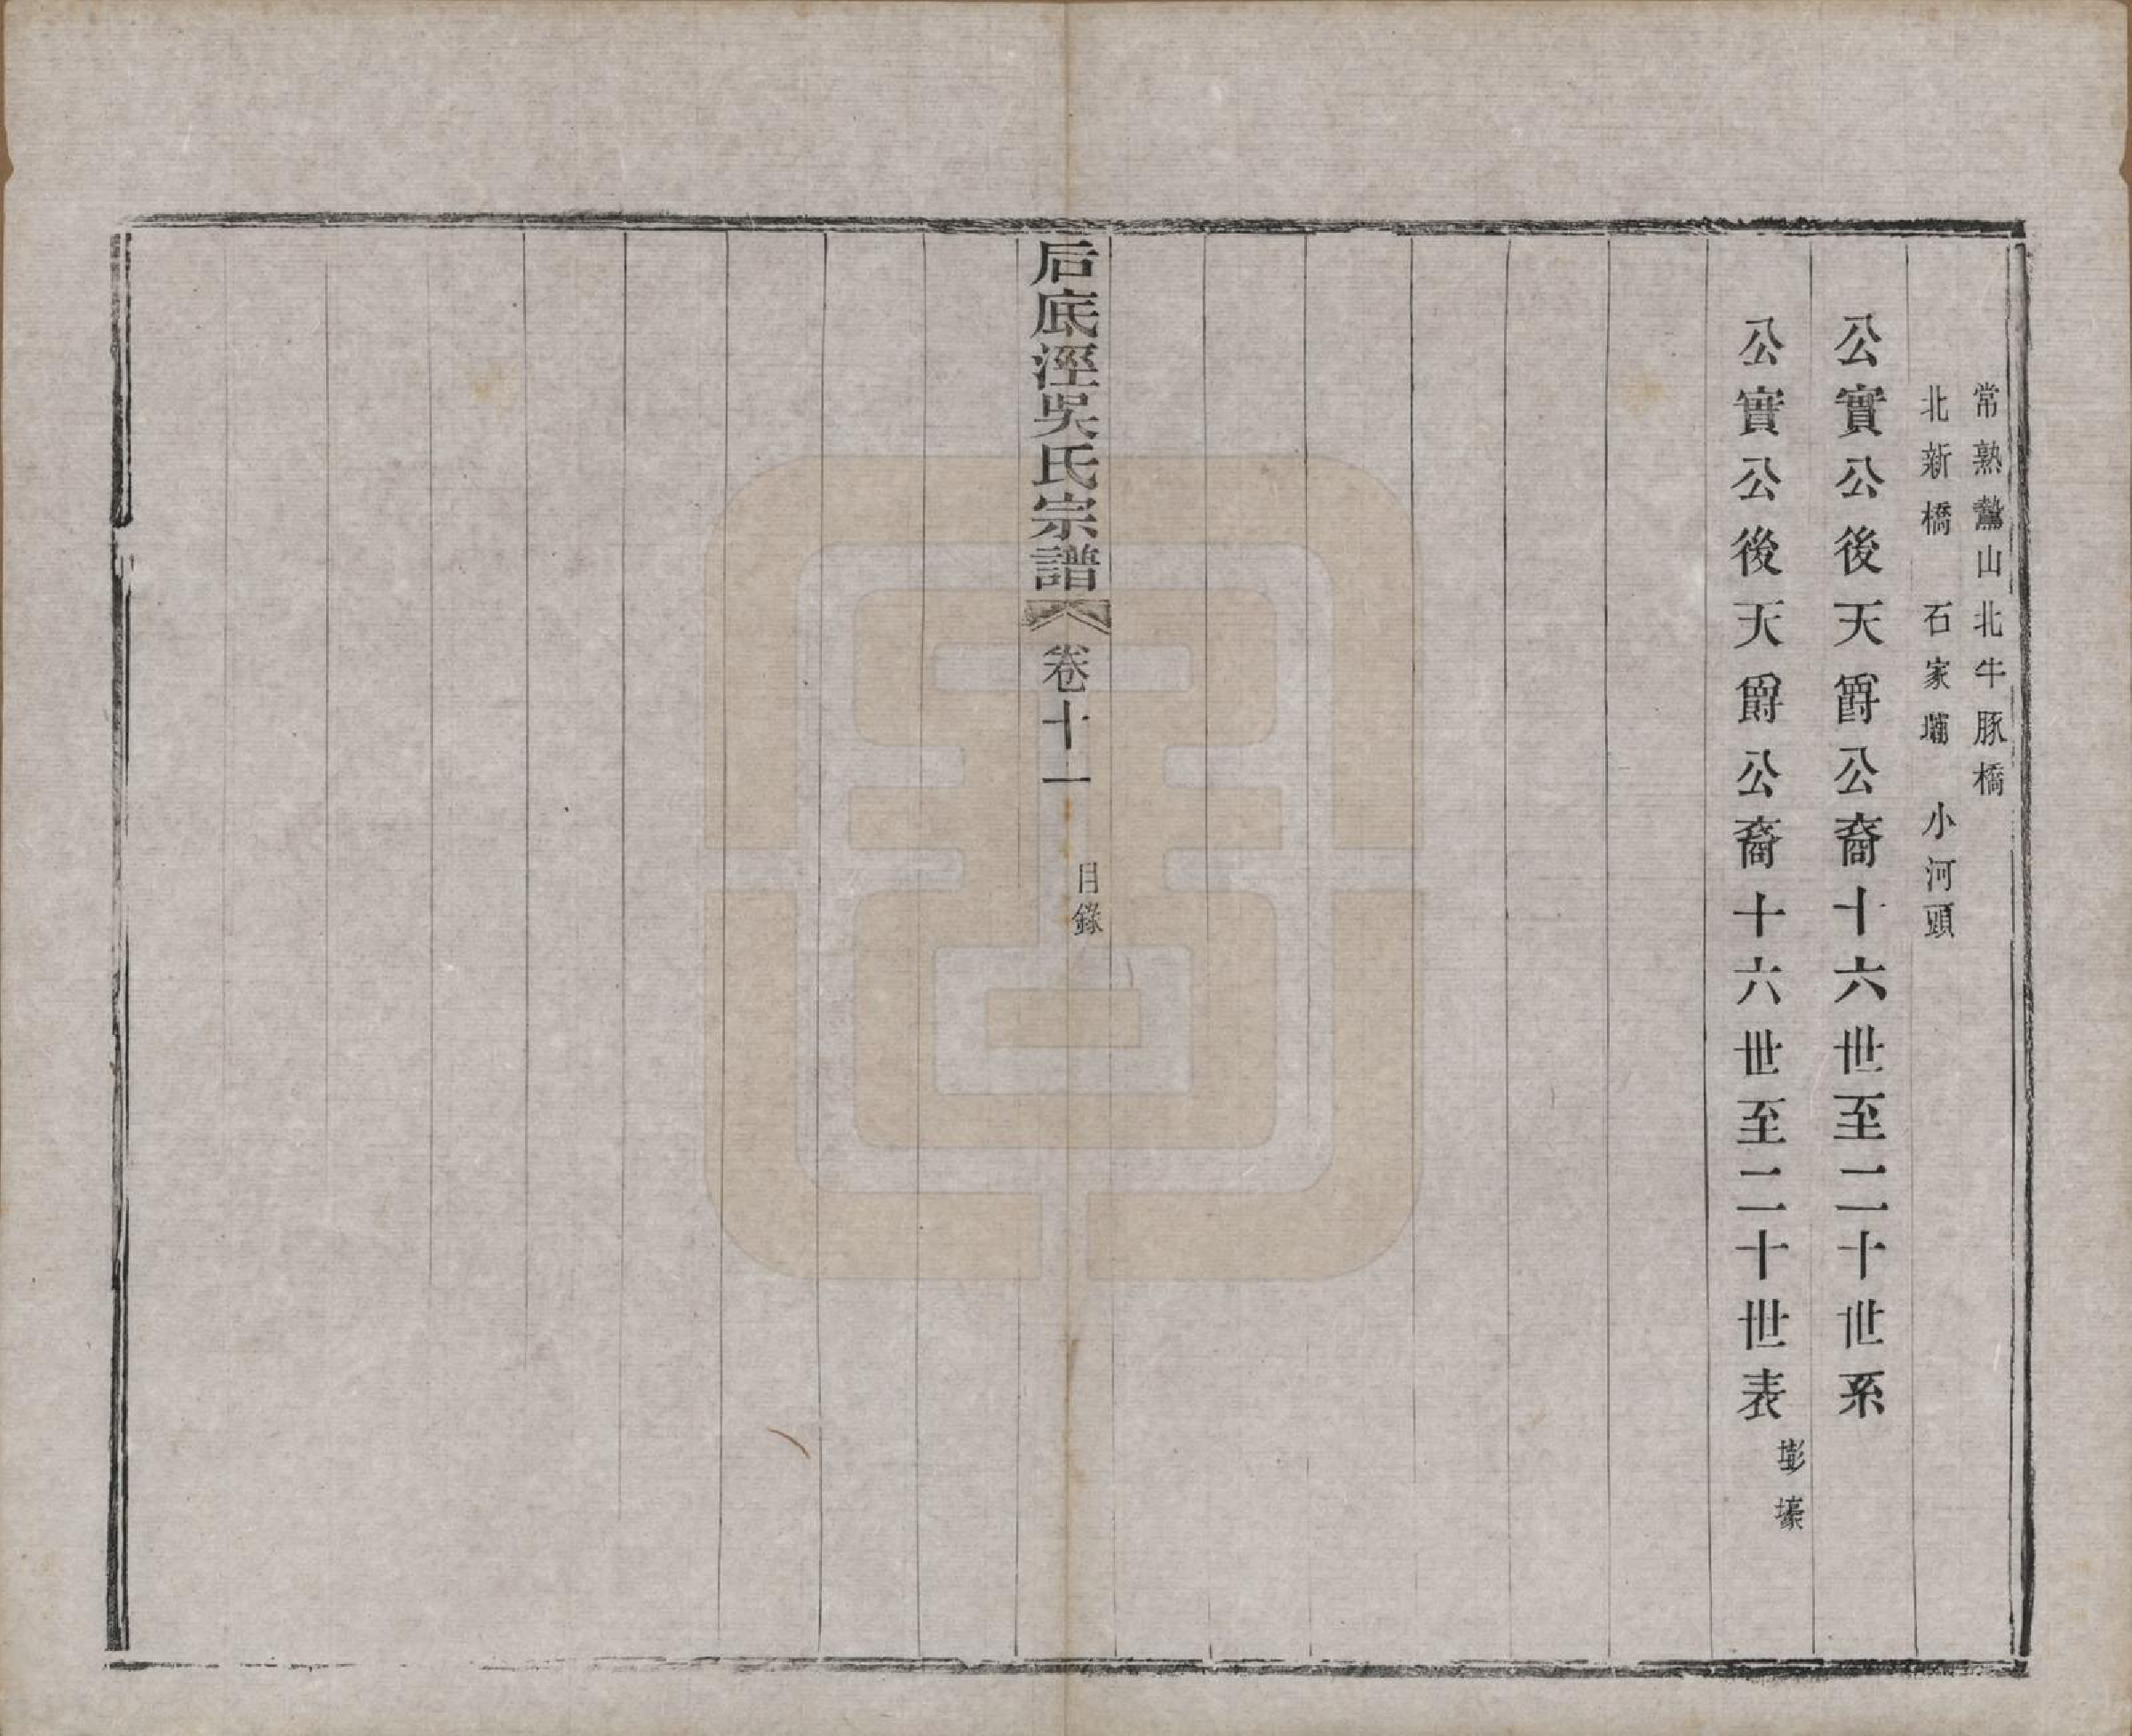 常熟鷔山北牛豚橋
北新橋　石家　　小河頭
公實公後天爵公裔十六世至二十世系
公實公後天爵公裔十六世至二十世表　塳壕
后底涇吳氏宗譜　卷十一　目錄